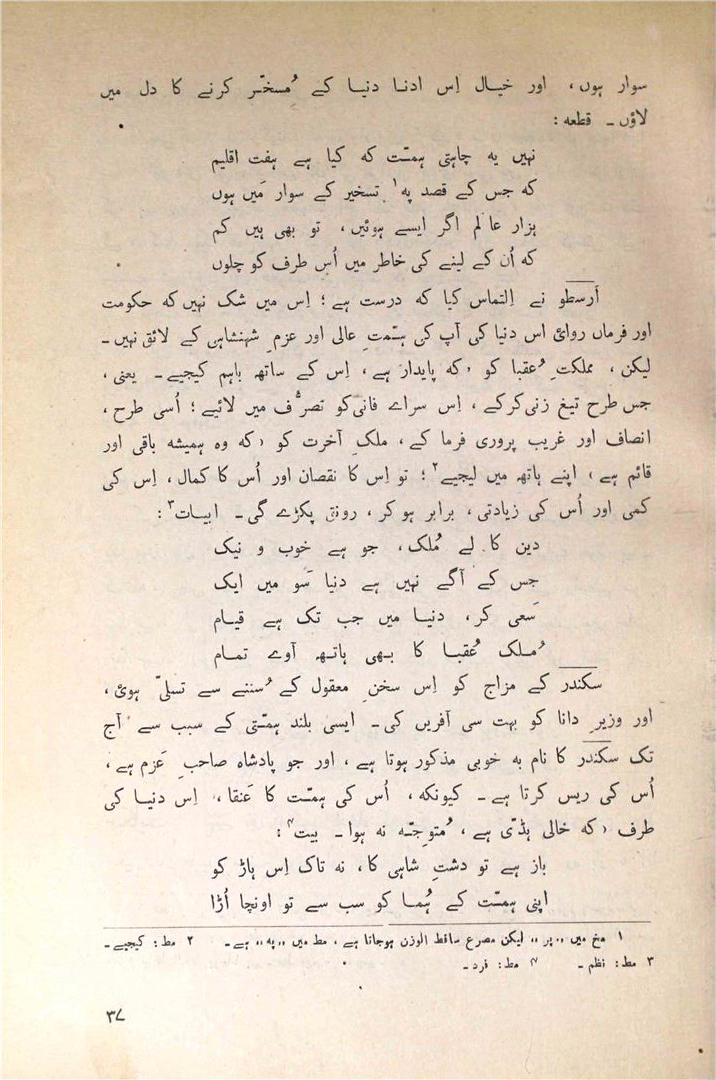 سوار ہوں، اور خیال اِس ادنا دنیا کے مُسخّر کرنے کا دل میں
لاؤں ـ قطعہ :
نہیں یہ چاہتی ہمّت کہ کیا ہے ہفت اقلیم
کہ جس کے قصد پہ۱ تسخیر کے سوار مَیں ہوں
ہزار عالم اگر ایسے ہوئیں، تو بھی ہیں کم
کہ اُن کے لینے کی خاطر میں اُس طرف کو چلوں
اَرسطو نے اِلتماس کیا کہ درست ہے؛ اِس میں شک نہیں کہ حکومت
اور فرماں روائ اس دنیا کی آپ کی ہمّتِ عالی اور عزمِ شہنشاہی کے لائق نہیں ـ
لیکن، مملکتِ عُقبا کو، کہ پایدار ہے، اِس کے ساتھ باہم کیجیے ـ یعنی،
جس طرح تیغ زنی کرکے، اِس سراے فانی کو تصرُّف میں لائیے؛ اُسی طرح،
انصاف اور غریب پروری فرما کے، ملکِ آخرت کو، کہ وہ ہمیشہ باقی اور
قائم ہے، اپنے ہاتھ میں لیجیے۲؛ تو اِس کا نقصان اور اُس کا کمال، اِس کی
کمی اور اُس کی زیادتی، برابر ہو کر، رونق پکڑے گی ـ ابیات۳ :
دین کا لے مُلک، جو ہے خوب و نیک
جس کے آگے نہیں ہے دنیا سَو میں ایک
سَعی کر، دنیا میں جب تک ہے قیام
مُلک عُقبا کا بھی ہاتھ آوے تمام
سکندر کے مزاج کو اِس سخنِ معقول کے سُننے سے تسلیّ ہوئ،
اور وزیرِ دانا کو بہت سی آفریں کی ـ ایسی بلند ہمّتی کے سبب سے آج
تک سکندر کا نام بہ خوبی مذکور ہوتا ہے، اور جو پادشاہ صاحبِ عَزم ہے،
اُس کی ریس کرتا ہے ـ کیونکہ، اُس کی ہمّت کا عَنقا، اِس دنیا کی
طرف، کہ خالی ہڈّی ہے، مُتوجّہ نہ ہوا ـ بیت۴ :
باز ہے تو دشتِ شاہی کا، نہ تاک اِس ہاڑ کو
اپنی ہمّت کے ہُما کو سب سے تو اونچا اُڑا
۱ مخ میں ,,پر،، لیکن مصرع ساقط الوزن ہوجاتا ہے، مط میں ,,پہ،، ہے ـ ۲ مط: کیجیے ـ
۳ مط: نظم ـ ۴ مط: فرد ـ
۳۷